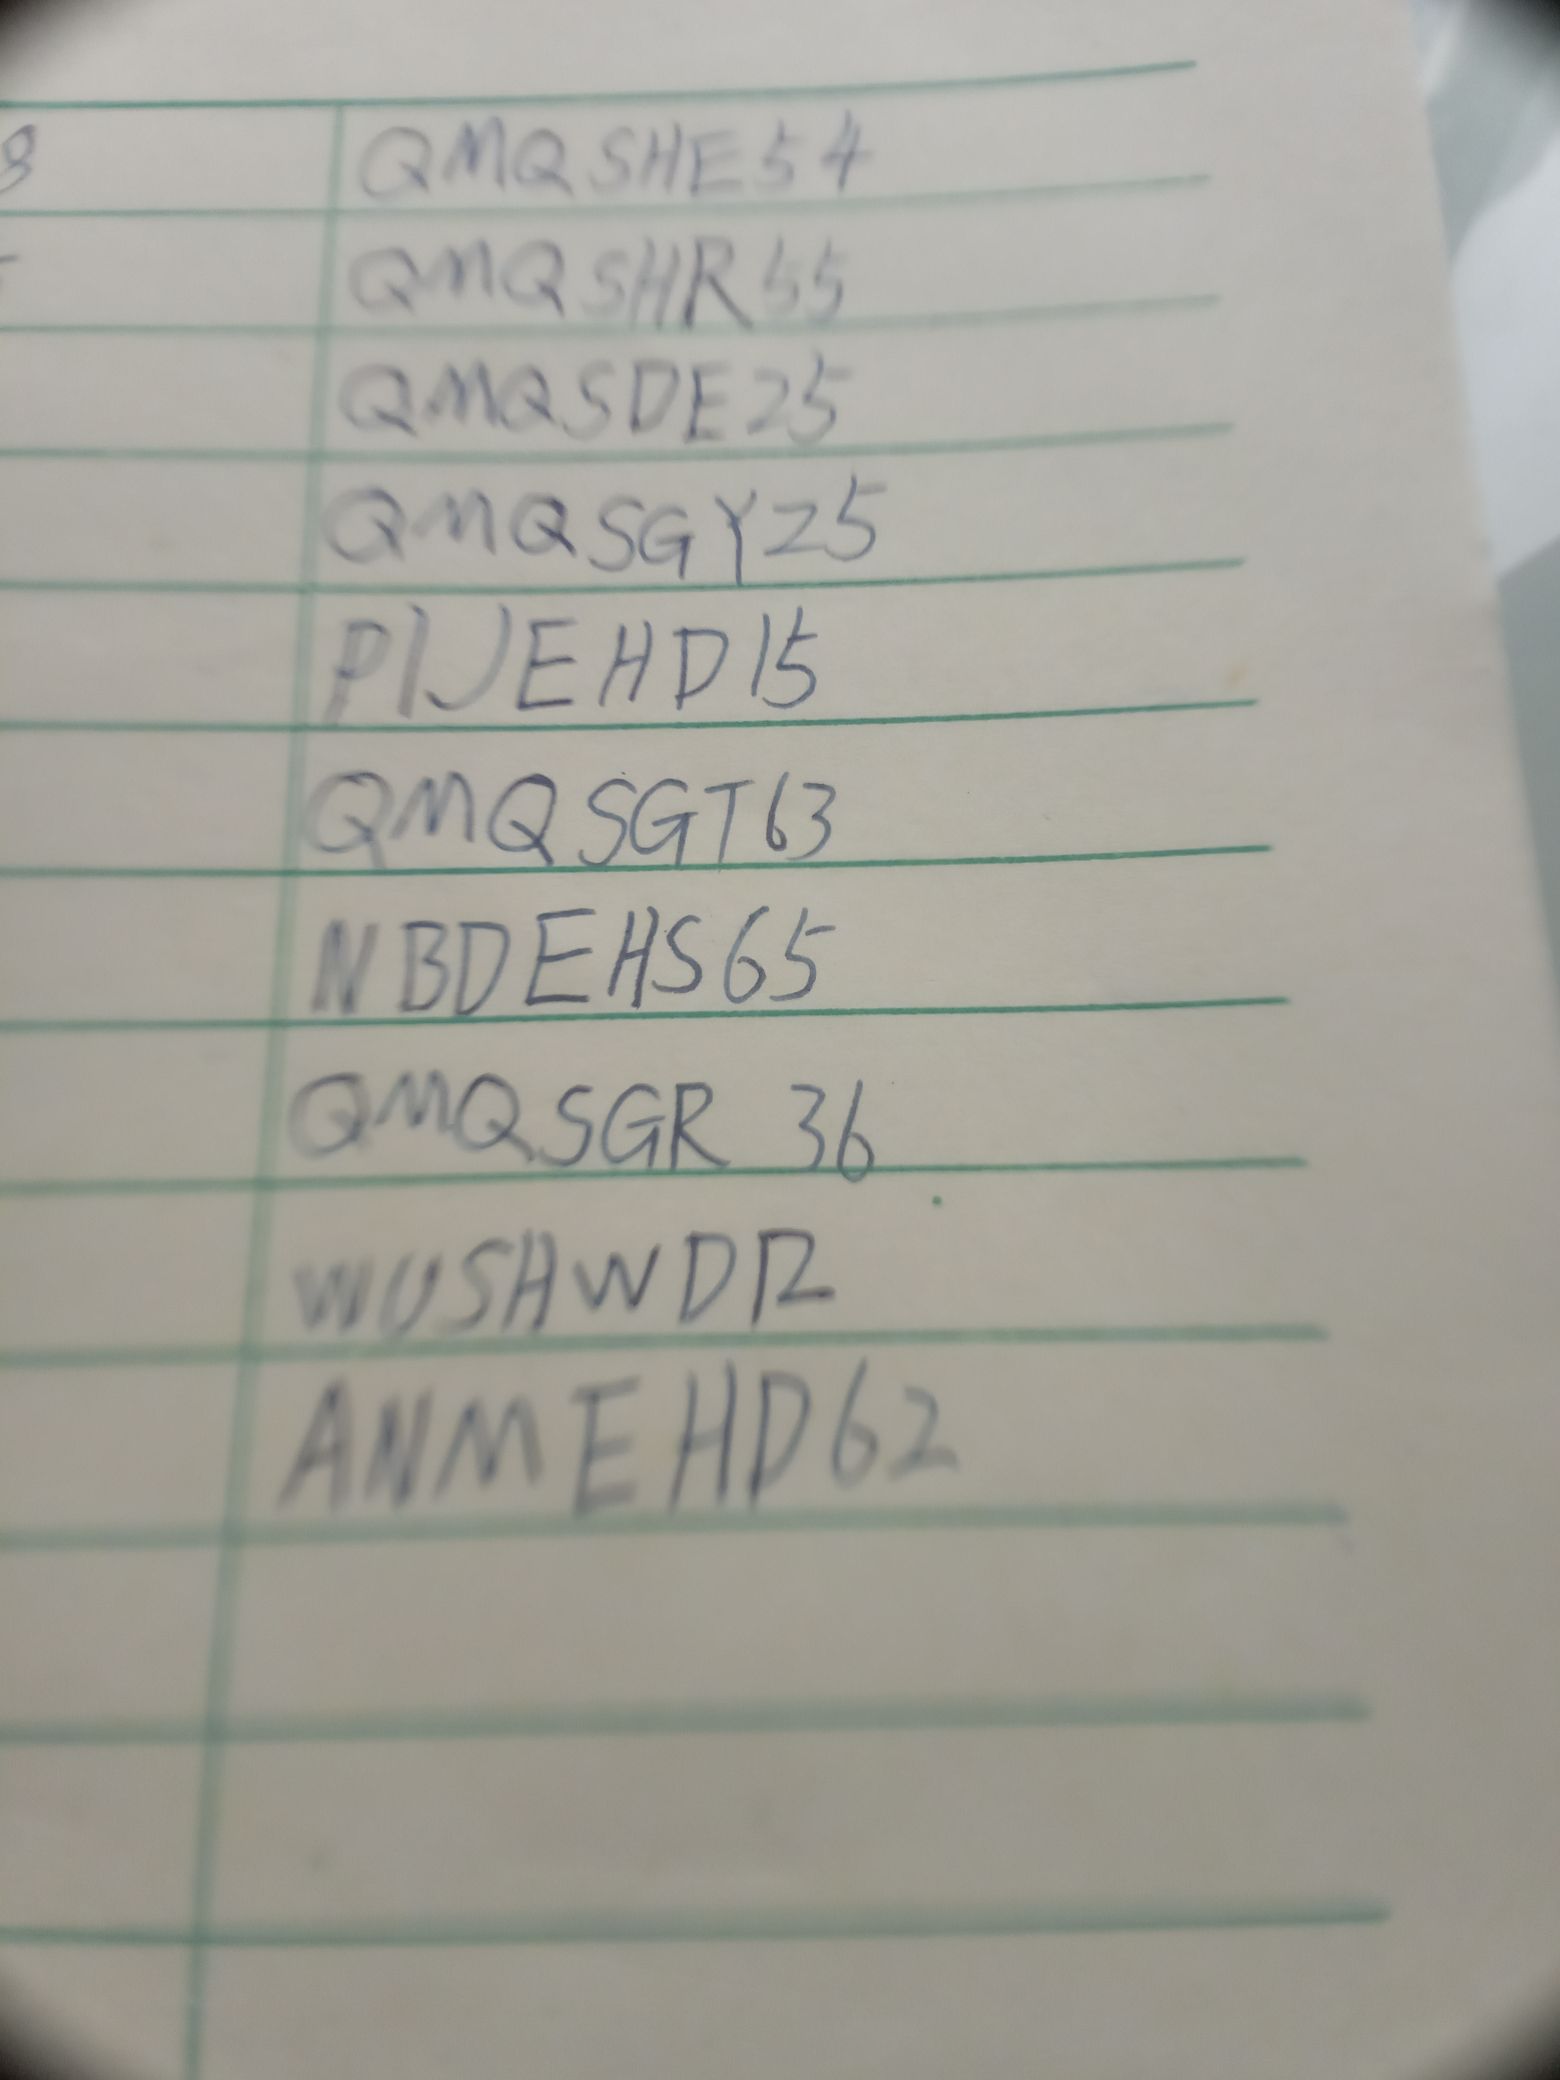 8
QMQSHE54
QMQSHR55
QMQSDE25
QMQSGYZ5
PIJEHD15
QMQSGT63
NBDEHS65
QMQSGR 36
WUSHWD12
ANMEHD62